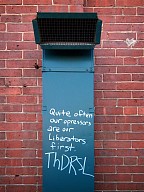 Quite often
our oppressors
are our
Liberators
first
ThDRSL